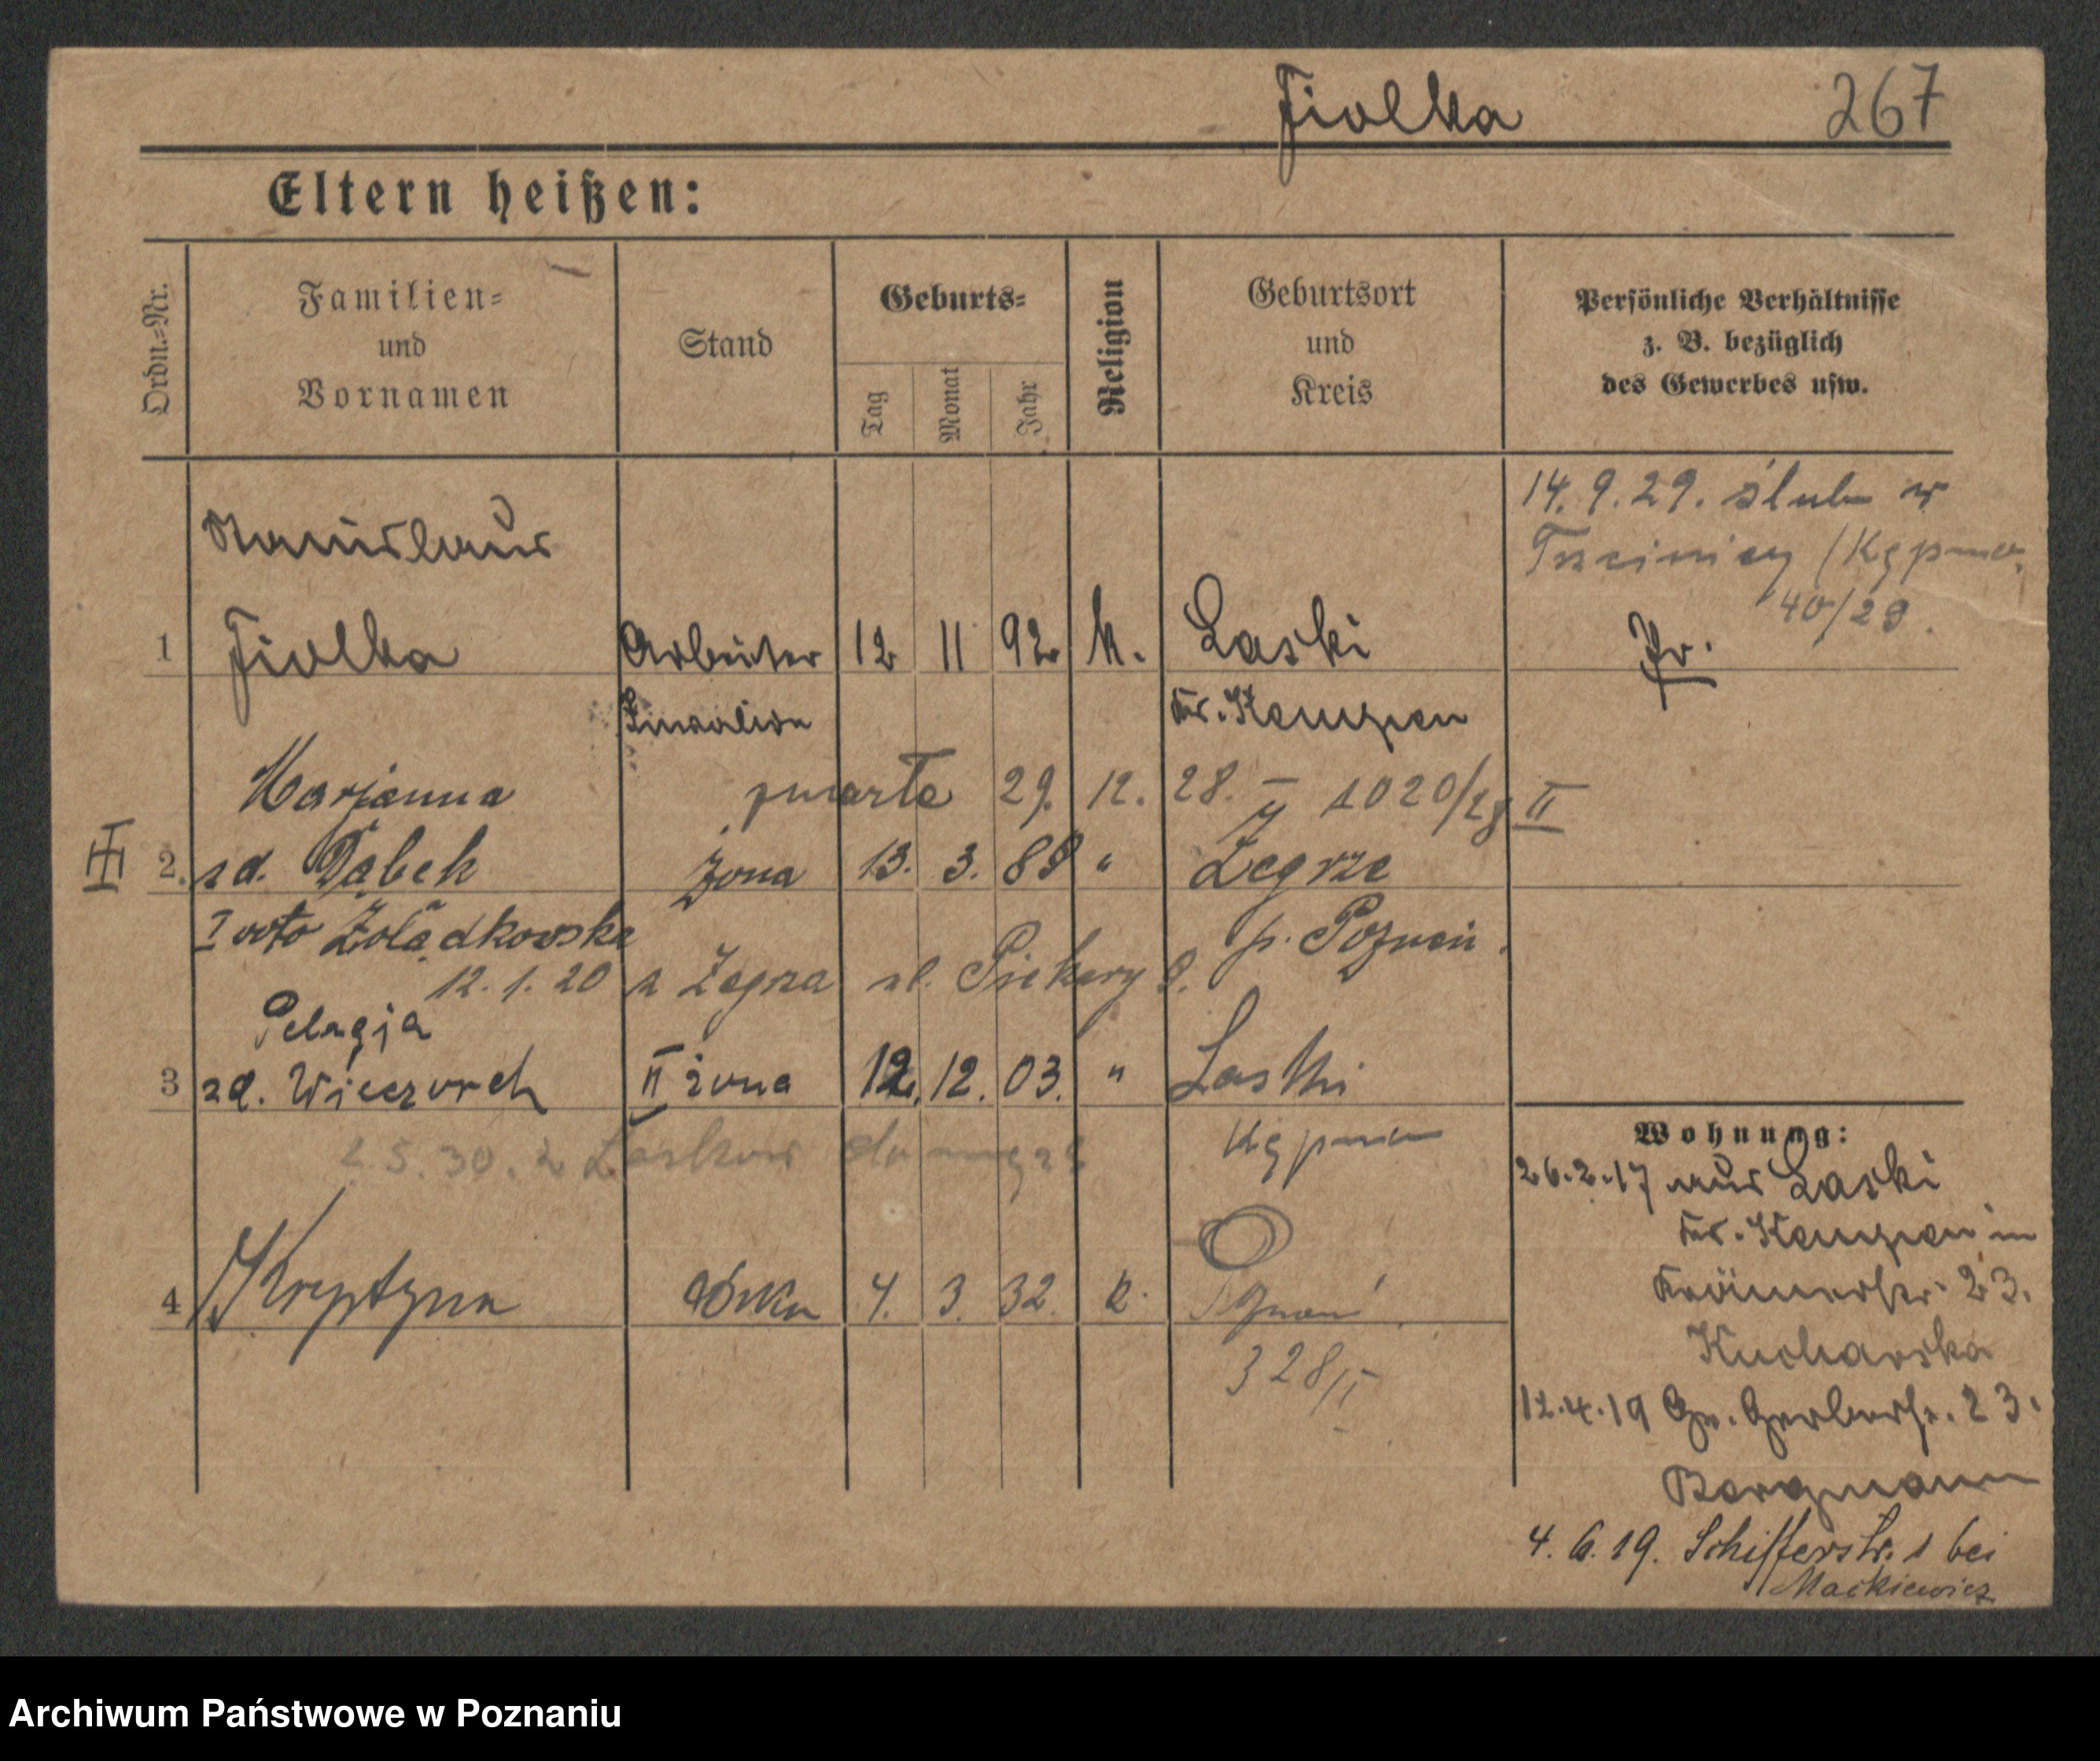 Fiolka 267
Eltern heißen:
Ordn.=Nr.
Familien=
und
Vornamen
Stand
Geburts=
Tag
Monat
Jahr
Religion
Geburtsort
und
Kreis
Persönliche Verhältnisse
z. B. bezüglich
des Gewerbes usw.
14. 9. 29. ślub w
Trzcinicy / Kępno
40/29.
Stanislaus
1 Fiolka Arbeiter 12 11 92 k. Laski
Invalide Kr. Kempen
Marjanna zmarła 29. 12. 28. 1020/28 II
2. zd. Dąbek żona 13. 3. 88 " Żegrze
I voto Żołądkowska p. Poznań.
12. 1. 20 z Żegrza ul. Piekary
Pelagja
3 zd. Wieczorek II żona 12. 12. 03. " Laski
Kępno
2 5. 30. z Lasków do męża
4 Krystyna córka 4. 3. 32. k. Poznań
328/II
Wohnung:
26.2.17 aus Laski
Kr. Kempen in
Krämerstr. 23.
Kucharska
12.4.19 Gr. Gerberstr. 23.
Bergmann
4. 6. 19. Schifferstr. 1 bei
Maćkiewicz
Archiwum Państwowe w Poznaniu